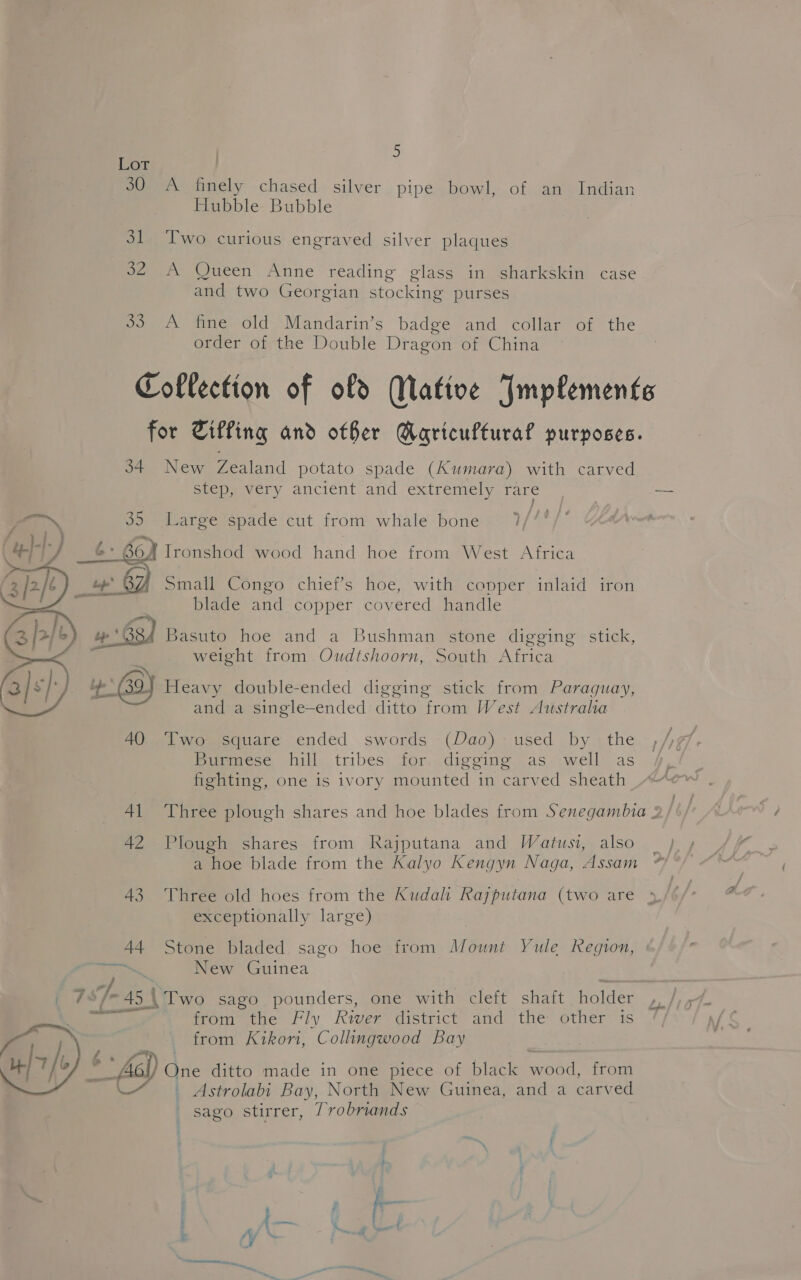 5
Lot
30 A finely chased silver pipe bowl, of an Indian
Hubble Bubble
31 Two curious engraved silver plaques
32 A Queen Anne reading glass in sharkskin case
and two Georgian stocking purses
33 A fine old Mandarin's badge and collar of the
order of the Double Dragon of China
Collection of old Native Implements
for Tilling and other Agricultural purposes.
34 New Zealand potato spade (Kumara) with carved
step, very ancient and extremely rare —
35 Large spade cut from whale bone
4/-/- 6 · 36 Ironshod wood hand hoe from West Africa
3/2/6 37 Small Congo chief's hoe, with copper inlaid iron
blade and copper covered handle
3/2/6 38 Basuto hoe and a Bushman stone digging stick,
weight from Oudtshoorn, South Africa
3/5/- 39 Heavy double-ended digging stick from Paraguay,
and a single-ended ditto from West Australia
40 Two square ended swords (Dao) used by the
Burmese hill tribes for digging as well as
fighting, one is ivory mounted in carved sheath
41 Three plough shares and hoe blades from Senegambia
42 Plough shares from Rajputana and Watusi, also
a hoe blade from the Kalyo Kengyn Naga, Assam
43 Three old hoes from the Kudali Rajputana (two are
exceptionally large)
44 Stone bladed sago hoe from Mount Yule Region,
New Guinea
75/- 45 Two sago pounders, one with cleft shaft holder
from the Fly River district and the other is
from Kikori, Collingwood Bay
4/7/6 6 · 46 One ditto made in one piece of black wood, from
Astrolabi Bay, North New Guinea, and a carved
sago stirrer, Trobriands